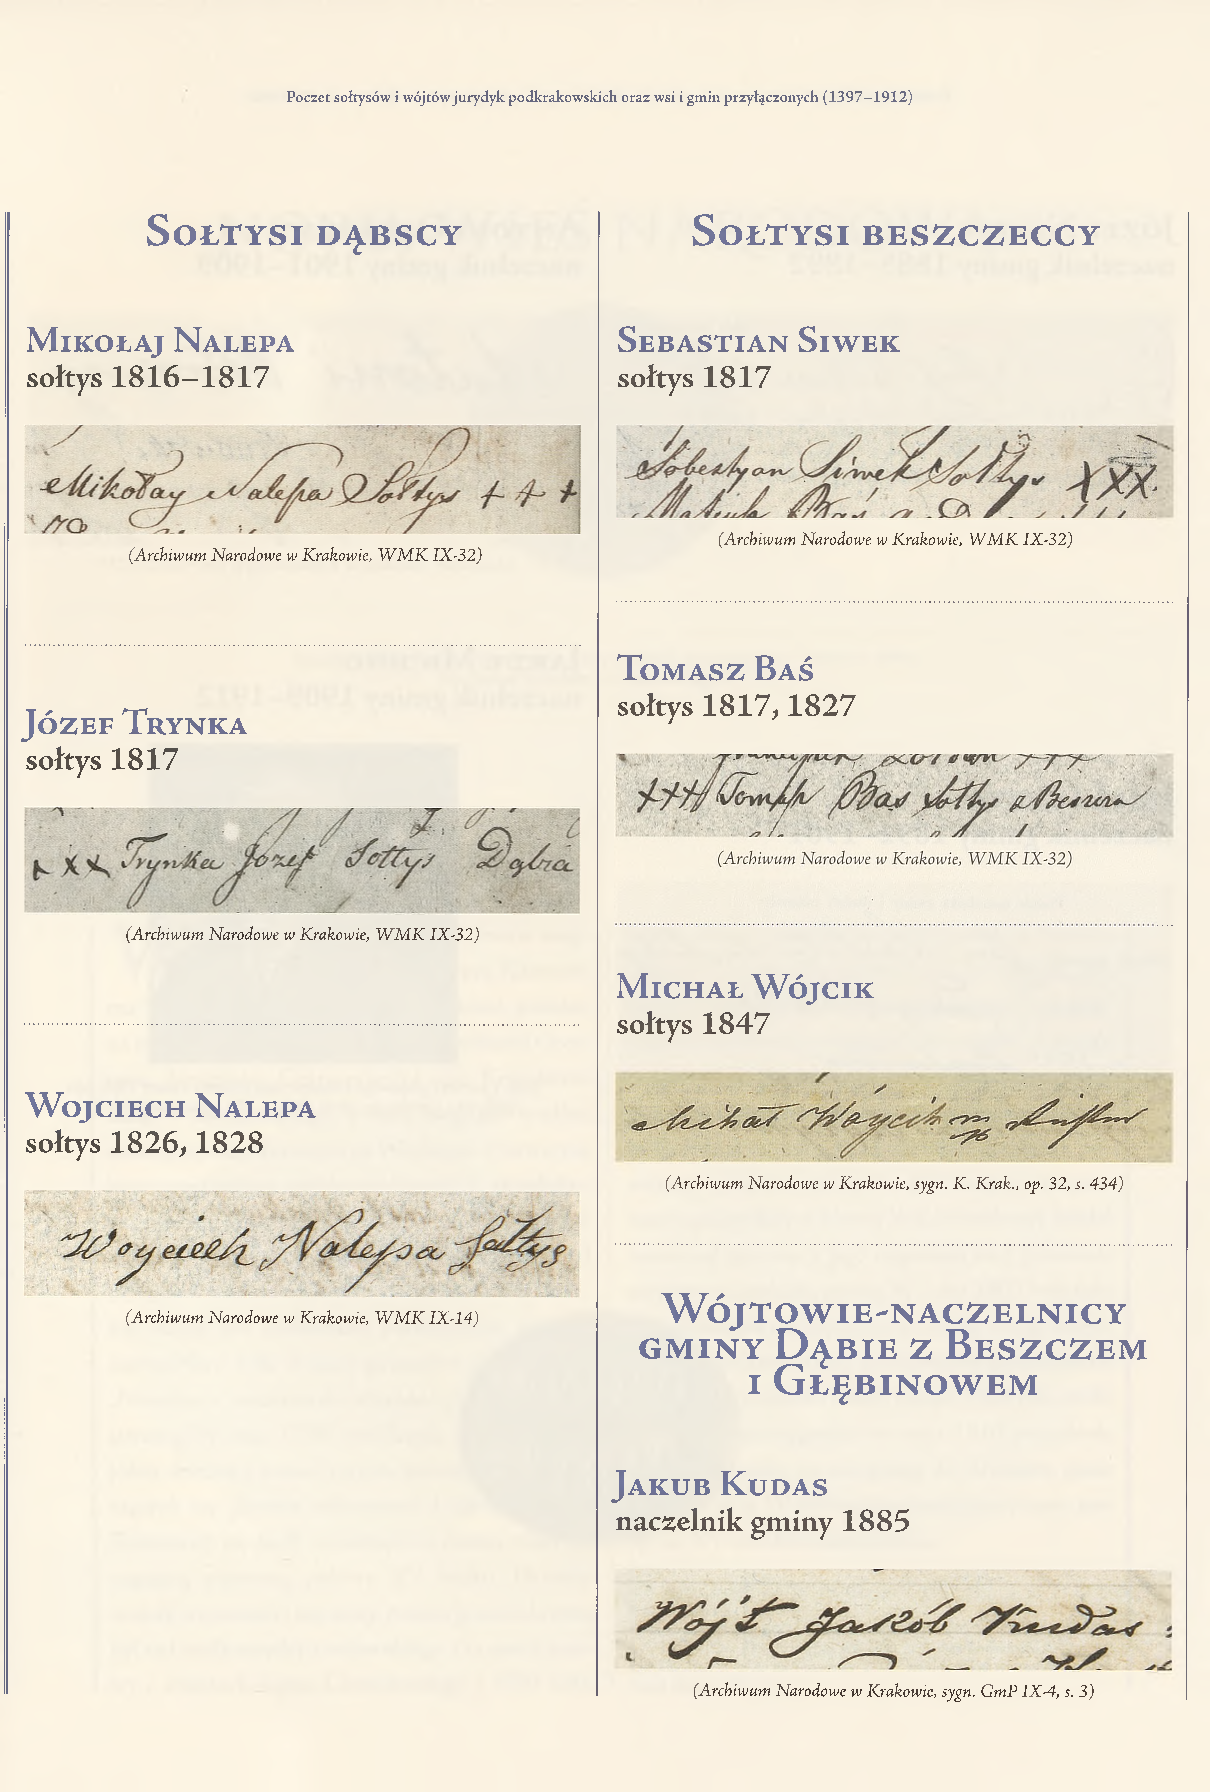 Poczet sołtysów i wójtów jurydyk podkrakowskich oraz wsi i gmin przyłączonych (1397–1912)
Sołtysi dąbscy
Mikołaj Nalepa
sołtys 1816–1817
Mikołay Nalepa Sołtys + + +
(Archiwum Narodowe w Krakowie, WMK IX-32)
Józef Trynka
sołtys 1817
x x x Trynka Jozef Sołtys Dąbia
(Archiwum Narodowe w Krakowie, WMK IX-32)
Wojciech Nalepa
sołtys 1826, 1828
Woyciech Nalepa Sołtys
(Archiwum Narodowe w Krakowie, WMK IX-14)
Sołtysi beszczeccy
Sebastian Siwek
sołtys 1817
Sobestyan Siwek Sołtys XXX.
(Archiwum Narodowe w Krakowie, WMK IX-32)
Tomasz Baś
sołtys 1817, 1827
XXX Tomasz Bas Sołtys z
(Archiwum Narodowe w Krakowie, WMK IX-32)
Michał Wójcik
sołtys 1847
Michał Wóycik
(Archiwum Narodowe w Krakowie, sygn. K. Krak., op. 32, s. 434)
Wójtowie-naczelnicy
gminy Dąbie z Beszczem
i Głębinowem
Jakub Kudas
naczelnik gminy 1885
Wójt Jakób Kudas
(Archiwum Narodowe w Krakowie, sygn. GmP IX-4, s. 3)